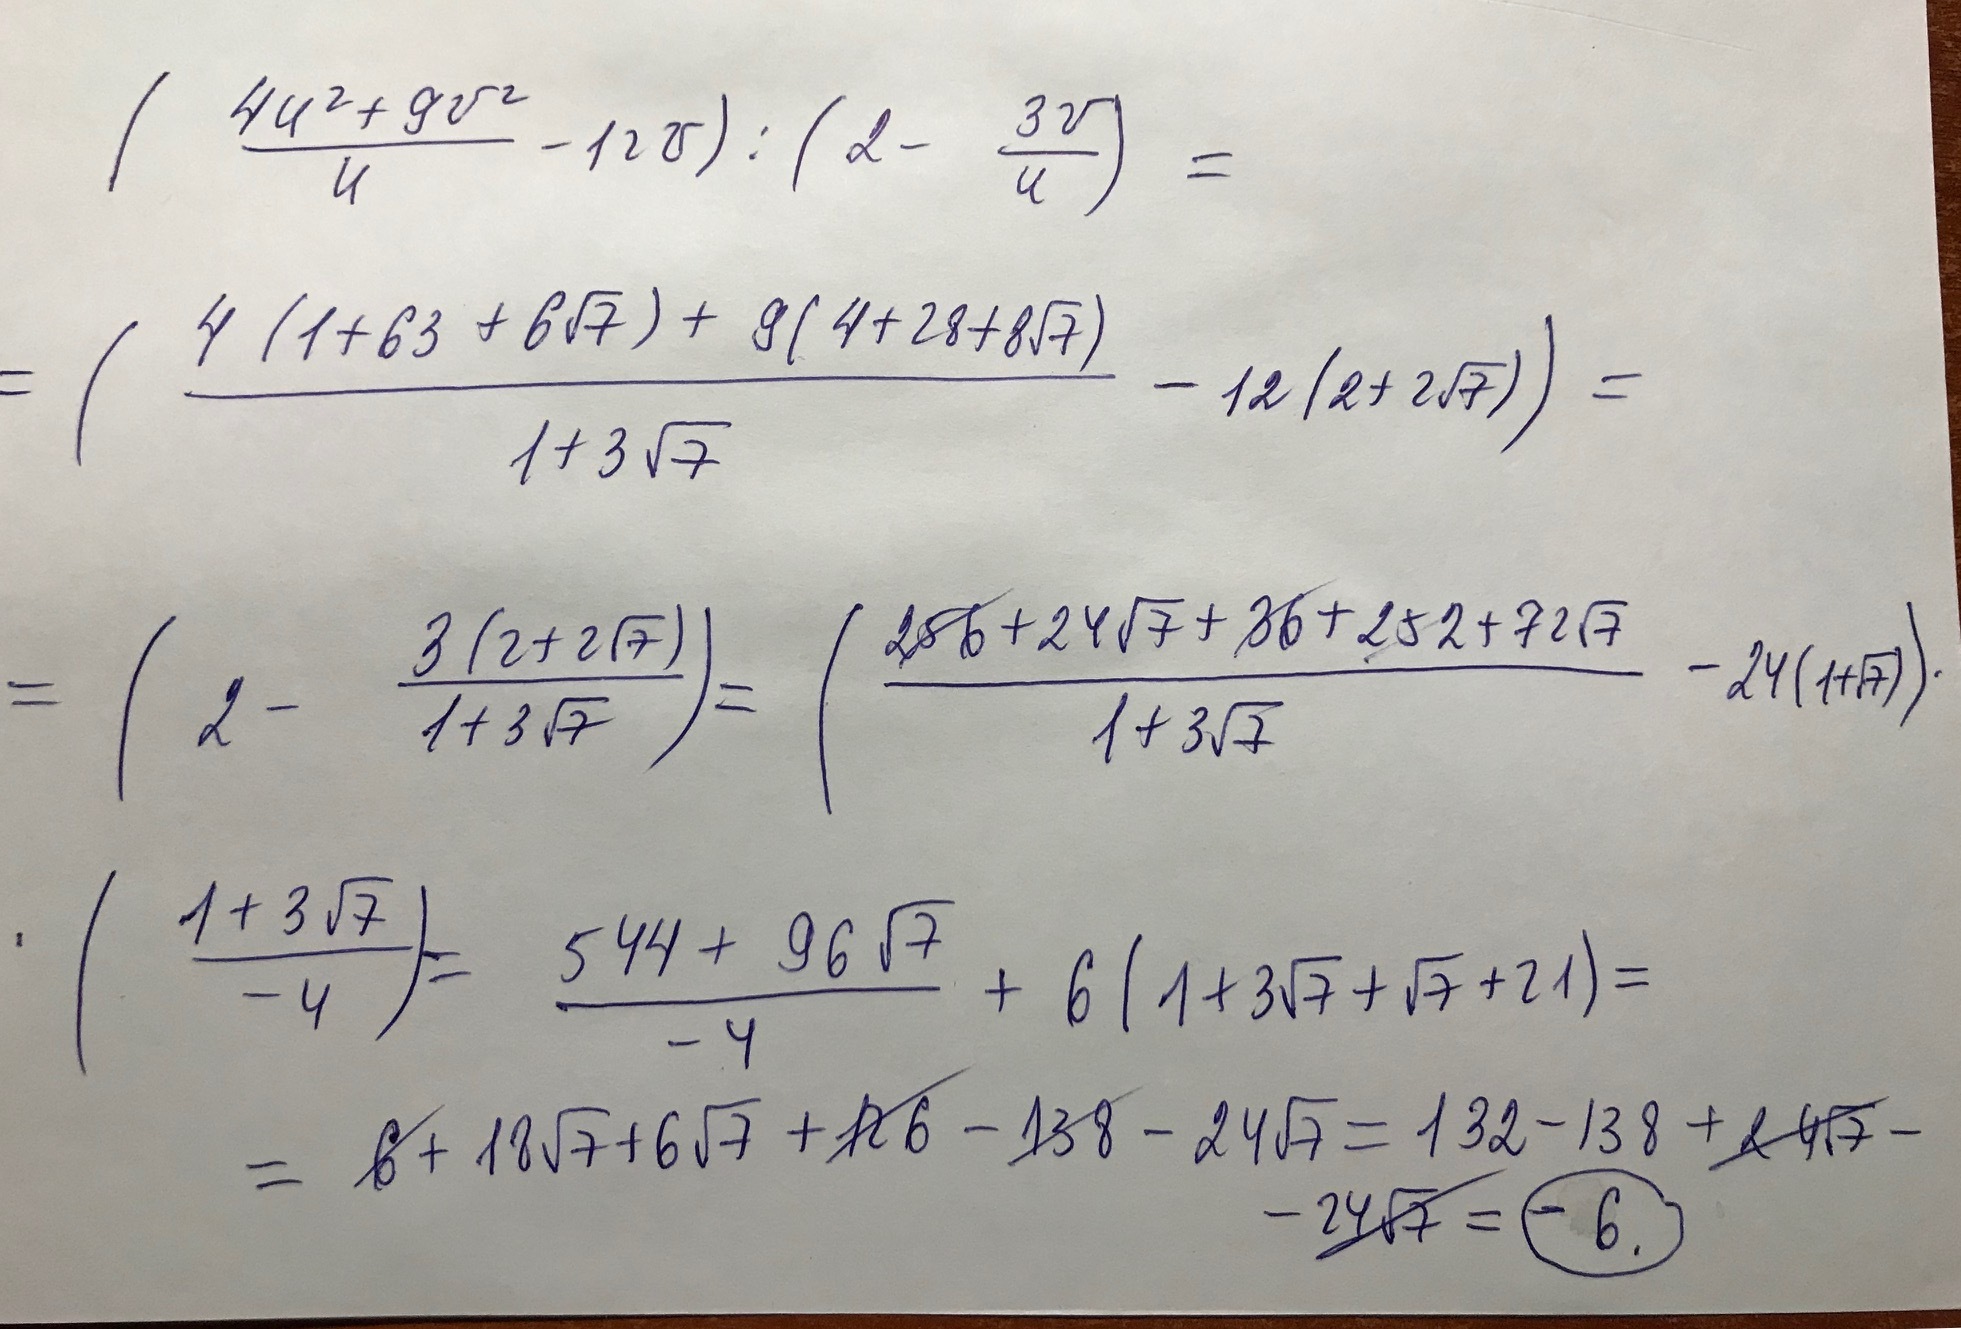 ( (4u² + 9v²)/u - 12v ) : ( 2 - 3v/u ) =
= ( (4(1+63+6√7) + 9(4+28+8√7))/(1+3√7) - 12(2+2√7) ) =
= ( 2 - 3(2+2√7)/(1+3√7) ) = ( (256+24√7+36+252+72√7)/(1+3√7) - 24(1+√7) ) ·
· ( (1+3√7)/(-4) ) = (544 + 96√7)/(-4) + 6(1+3√7+√7+21) =
= 6 + 18√7 + 6√7 + 126 - 138 - 24√7 = 132 - 138 + 24√7 -
- 24√7 = -6.